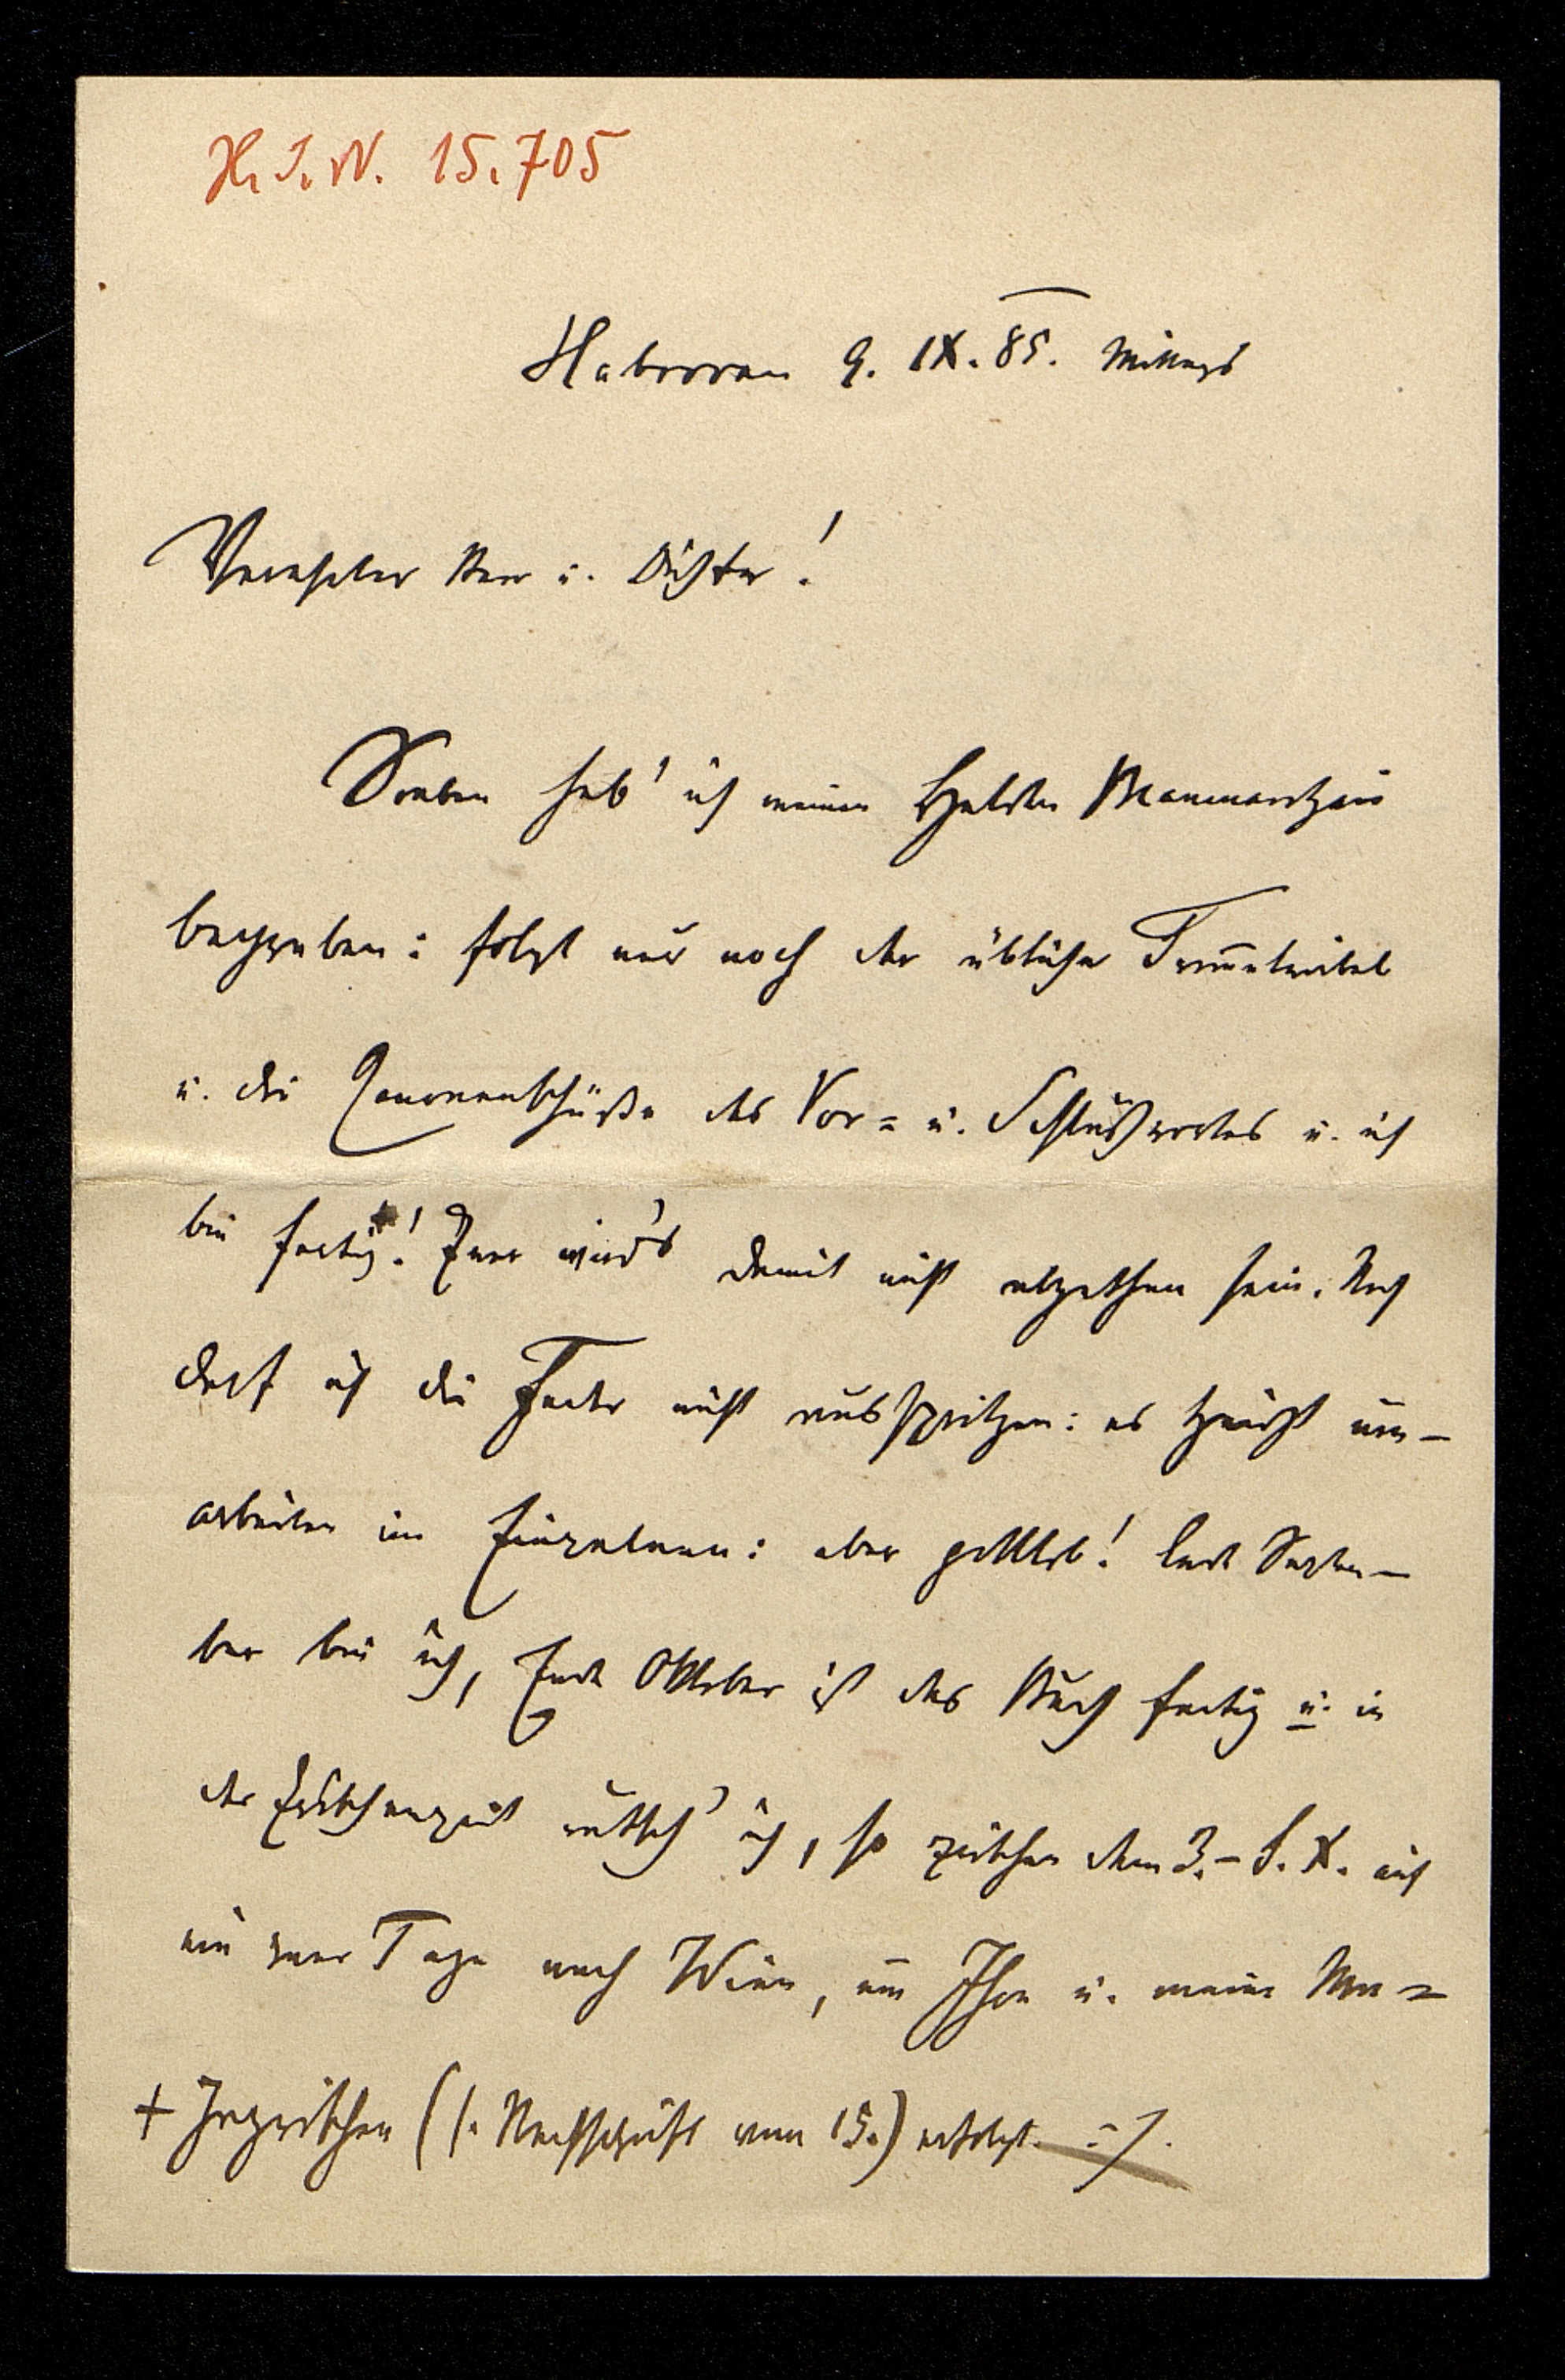 H. I. N. 15.705
Habrovan 9. IX. 85. Mittags
Verehrter Herr u. Dichter!
Soeben hab' ich meinen Helden
begraben: folgt nur noch der übliche Trom̅elwirbel
u. die Kanonenschüsse des Vor= u. Schlußwortes u. ich
bin fertig+! Zwar wird's damit nicht abgethan sein. Noch
darf ich die Feder nicht ausspritzen: es heißt um-
arbeiten im Einzelnen: aber gottlob! Ende Septem-
ber bin ich, Ende Oktober ist das Buch fertig u. in
der Zwischenzeit rutsch' ich, so zwischen dem 3.- X. auf
ein paar Tage nach Wien, um Ihre u. meine
+ Inzwischen (s. Nachschrift vom 15.) erfolgt.